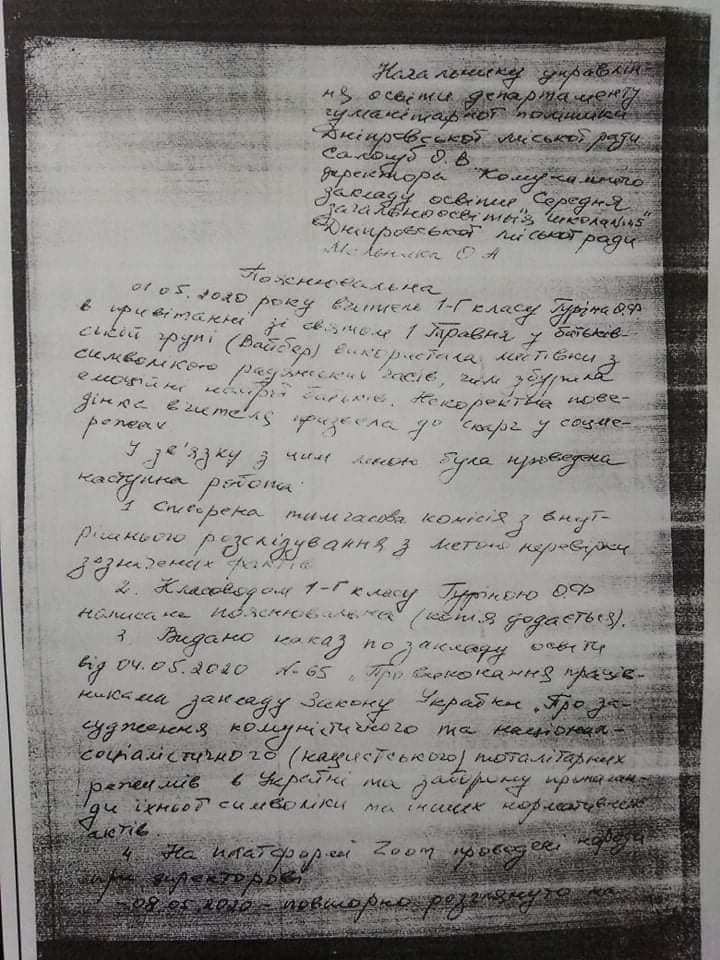 Начальнику управлін-
ня освіти департаменту
гуманітарної політики
Дніпровської міської ради
О. В
директора "Комунального
закладу освіти "Середня
загальноосвітня школа №
Дніпровської міської ради
О А
Пояснювальна
01.05.2020 року вчитель 1-Г класу Гуріна О.Ф
в привітанні зі святом 1 Травня у батьків-
ській групі (Вайбер) використала листівки з
символікою радянських часів, чим збурила
емоційні батьків. Некоректна пове-
дінка вчителя призвела до скарг у соцме-
режах
У зв'язку з чим мною була проведена
наступна робота:
1 Створена тимчасова комісія з внут-
рішнього розслідування з метою перевірки
зазначених фактів
2. Класоводом 1-Г класу Гуріною О.Ф
написана пояснювальна (копія додається).
3 Видано наказ по закладу освіти
від 04.05.2020 № 65 „Про виконання праців-
никами закладу Закону України „Про за-
судження комуністичного та націонал-
соціалістичного (нацистського) тоталітарних
режимів в Україні та заборону пропаган-
ди їхньої символіки та інших нормативних
актів.
4 На платформі Zoom проведені наради
при директорові
- 08.05.2020 - повторно розглянуто на